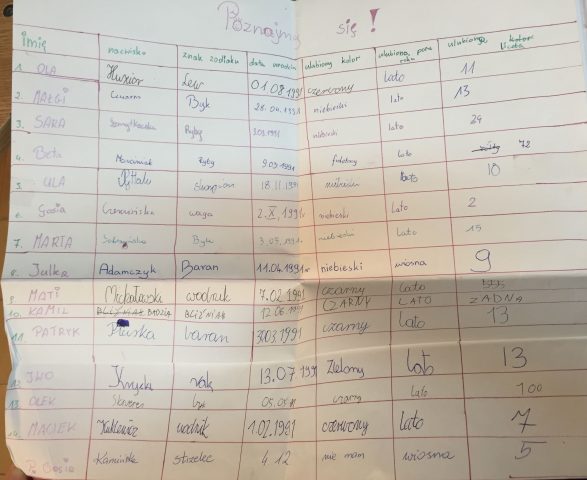 Poznajmy się!
imię nazwisko znak zodiaku data urodzin ulubiony kolor ulubiona pora roku ulubiony kolor liczba
1. OLA Lew 01.08.1991 czerwony lato 11
2. MAŁGI Byk 28.04.1991 niebieski lato 13
3. SARA Ryby 1991 lato 24
4. Beta Ryby 9.03.1991 lato 72
5. ULA 18.11.1991 lato 10
6. Gosia waga 2.X.1991 niebieski lato 2
7. MARTA Byk 3.05.1991 niebieski lato 15
8. Julka Adamczyk Baran 11.04.1991r niebieski wiosna 9
9. MATI Michałowski wodnik 7.02.1991 czarny lato
10. KAMIL BLIŹNIAK 12.06 CZARNY LATO ŻADNA
11. PATRYK baran 30.03.1991 czarny lato 13
12. IWO rak 13.07 1991 Zielony lato 13
13. OLEK byk 05.05 czarny lato 100
14. MACIEK wodnik 1.02.1991 czerwony lato 7
P. Gosia Kamińska strzelec 4.12 nie mam wiosna 5